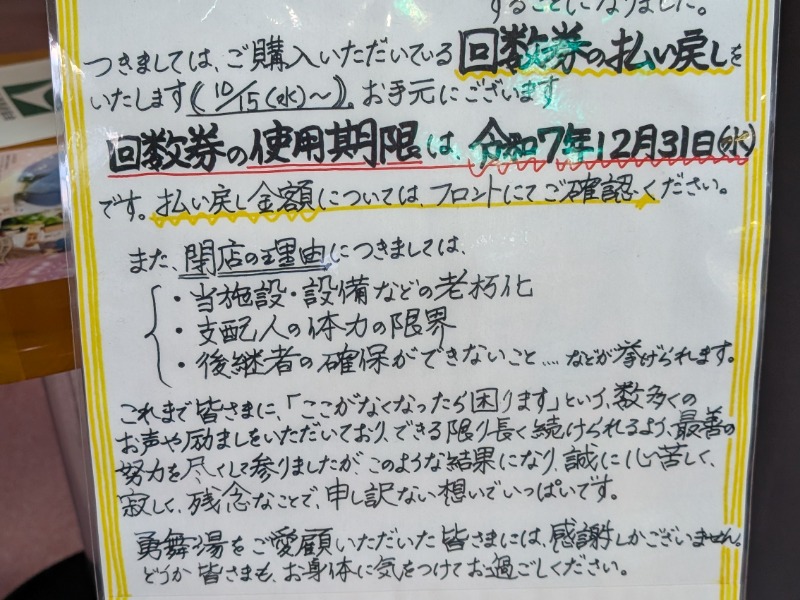 することになりました。
つきましては、ご購入いただいている回数券の払い戻しを
いたします(10/15(水)〜)。お手元にございます
回数券の使用期限は、令和7年12月31日(水)
です。払い戻し金額については、フロントにてご確認ください。
また、閉店の理由につきましては、
・当施設・設備などの老朽化
・支配人の体力の限界
・後継者の確保ができないこと.... などが挙げられます。
これまで皆さまに、「ここがなくなったら困ります」という、数多くの
お声や励ましをいただいており、できる限り長く続けられるよう、最善の
努力を尽くして参りましたが、このような結果になり、誠に心苦しく、
寂しく、残念なことで、申し訳ない想いでいっぱいです。
勇舞湯をご愛顧いただいた皆さまには、感謝しかございません。
どうか皆さまも、お身体に気をつけてお過ごしください。